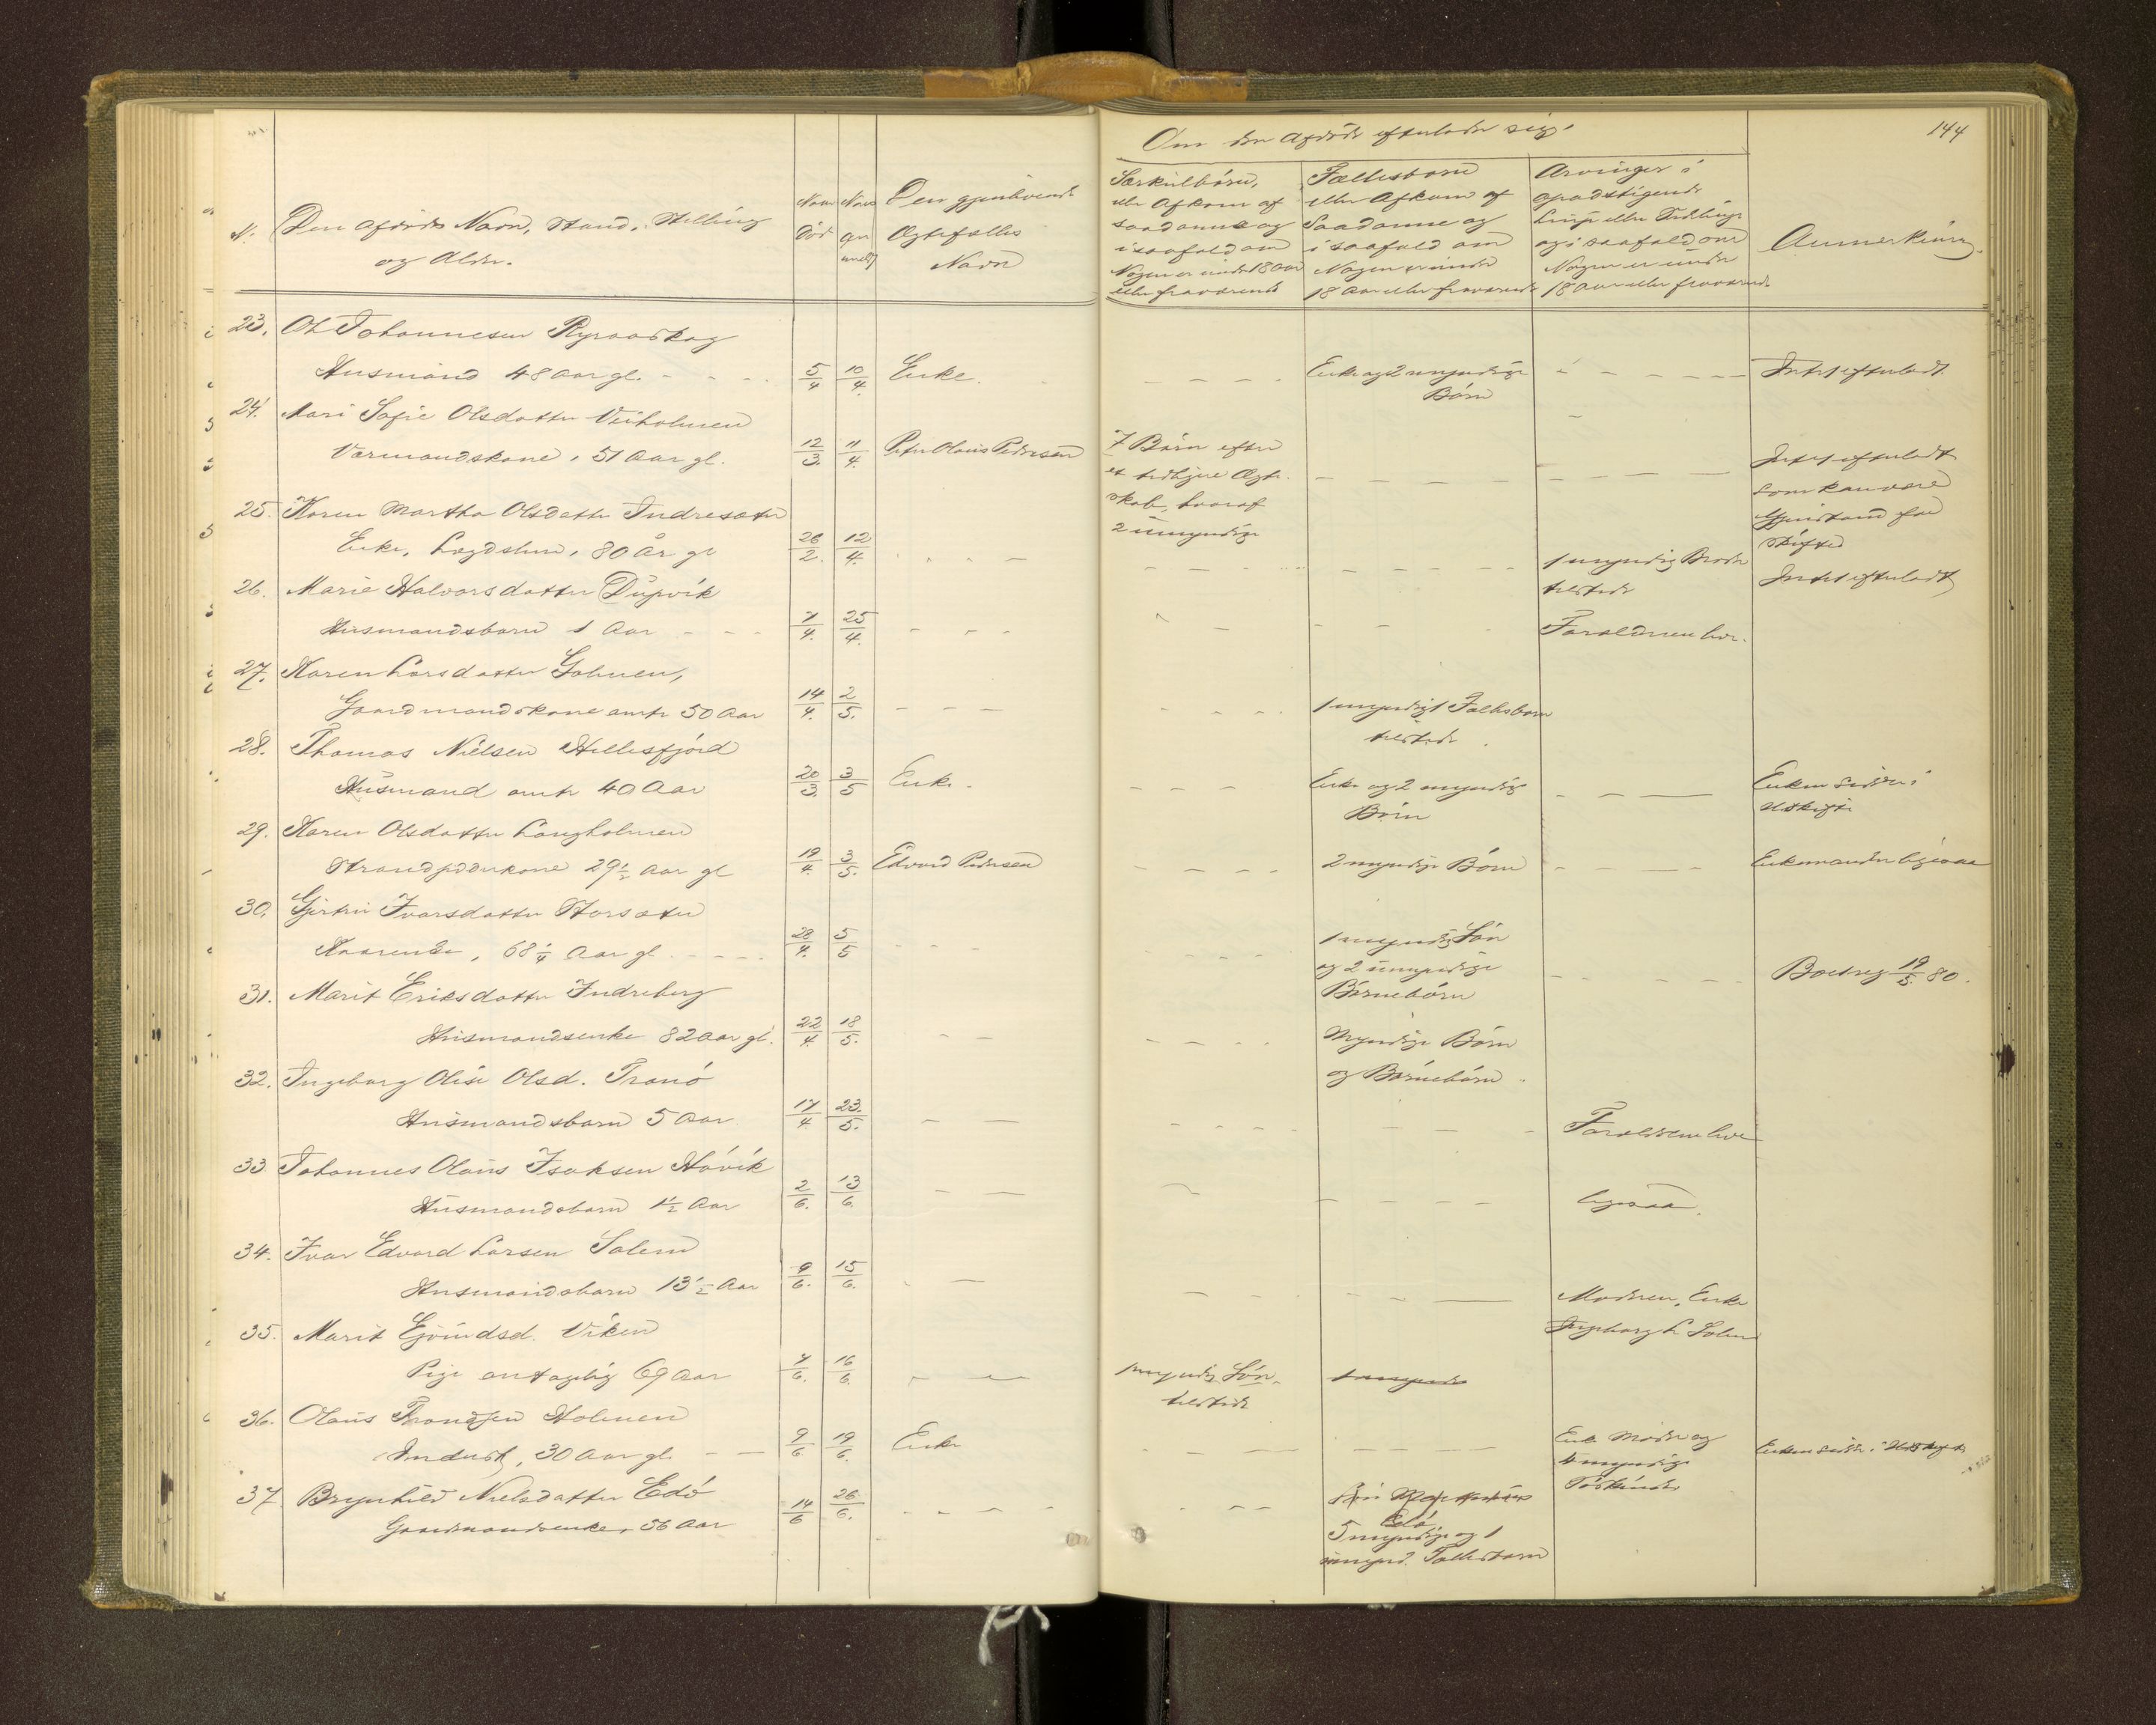 144
Om den Afdøde efterlader sig:
N. Den Afdødes Navn, Stand, Stilling
og Alder.
Naar
Død
Naar
an
meldt
Den gjenlevende
Ægtefælles
Navn
Særkulbørn,
eller Afkom af
saadanne og
i saafald om
Nogen er under 18 Aar
eller fraværende
Fællesbørn
eller Afkom af
Saadanne og
i saafald om
Nogen er under
18 Aar eller fraværende
Arvinger i
opadstigende
Linje eller Sidelinje
og i saafald om
Nogen er under
18 Aar eller fraværende
Anmerkning.
23. Ole Johannesen
Husmand 48 Aar gl. 5/4 10/4 Enke. Enke og 2 umyndige Intet efterladt
Børn
24. Mari Sofie Olsdatter Veiholmen
Værmandskone, 51 Aar gl. 12/3. 11/4. Peter Olaus Pedersen 7 Børn efter Intet efterladt
et tidligere Ægte-
skab, hvoraf
2 umyndige
som kan være
Gjenstand for
Skifte
25. Karen Martha Olsdatter Indresæter
Enke, Lægdslem, 80 År gl 26/2. 12/4. 1 myndig Broder Intet efterladt
tilstede
26. Marie Halvorsdatter Dupvik
Husmandsbarn 1 Aar 7/4. 25/4. Forældrene leve.
27. Karen Larsdatter Holmen,
Gaardmandskone omtr 50 Aar 14/4. 2/5. 1 myndigt Fællesbarn
tilstede.
28. Thomas Nielsen Hellesfjord
Husmand omtr 40 Aar 20/3. 3/5 Enke. Enke og 2 umyndige Enken sidder i
Børn Uskifte
29. Karen Olsdatter Langholmen
Strandsidderkone 29½ Aar gl 19/4. 3/5. Edvard Pedersen 2 umyndige Børn Enkemanden ligesaa
30. Gjertru Ivarsdatter Storsæter
68¼ Aar gl 28/4. 5/5 1 myndig Søn
og 2 umyndige Boet reg 19/5. 80.
Børnebørn
31. Marit Eriksdatter Indreberg
Husmandsenke 82 Aar gl. 22/4 18/5. Myndige Børn
og Børnebørn.
32. Ingeborg Olise Olsd. Tranø
Husmandsbarn 5 Aar 17/4 23./5. Forældrene leve
33 Johannes Olaus Isaksen Håvik
Husmandsbarn 1½ Aar 2/6. 13/6. ligesaa.
34. Ivar Edvard Larsen Solem
Husmandsbarn 13½ Aar 9/6. 15/6. Moderen, Enke
Ingeborg L Solem
35. Marit Ejvindsd. Viken
Pige antagelig 69 Aar 7/6. 16/6. 1 myndig Søn 1 umynd
tilstede
36. Olaus Trondsen Holmen
Inderst, 30 Aar gl. 9/6. 19/6. Enke Enke Moder og Enken sidder i Uskifte
4 myndige
Søskende
37. Brynhild Nielsdatter Edø
Gaardmandsenke, 56 Aar 14/6 26/6.
Edø
5 myndige og 1
umynd. Fællesbarn